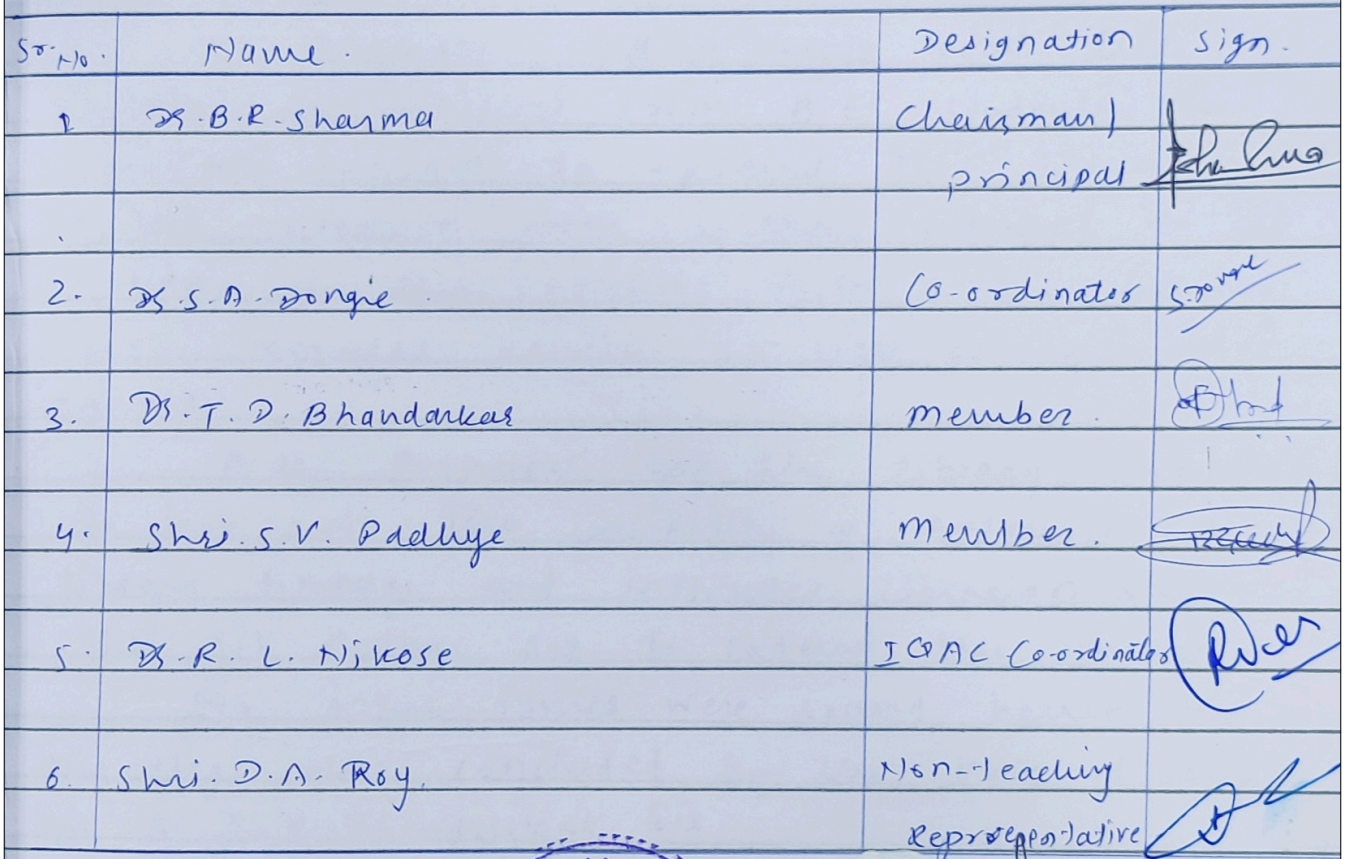 Sr. No. Name. Designation Sign.
1 Dr. B. R. Sharma Chairman /
principal
2. Dr. S. A. Dongre Co-ordinator
3. Dr. T. D. Bhandarkar member.
4. Shri. S. V. Padhye member.
5. Dr. R. L. Nikose IQAC Co-ordinator
6. Shri. D. A. Roy. Non-teaching